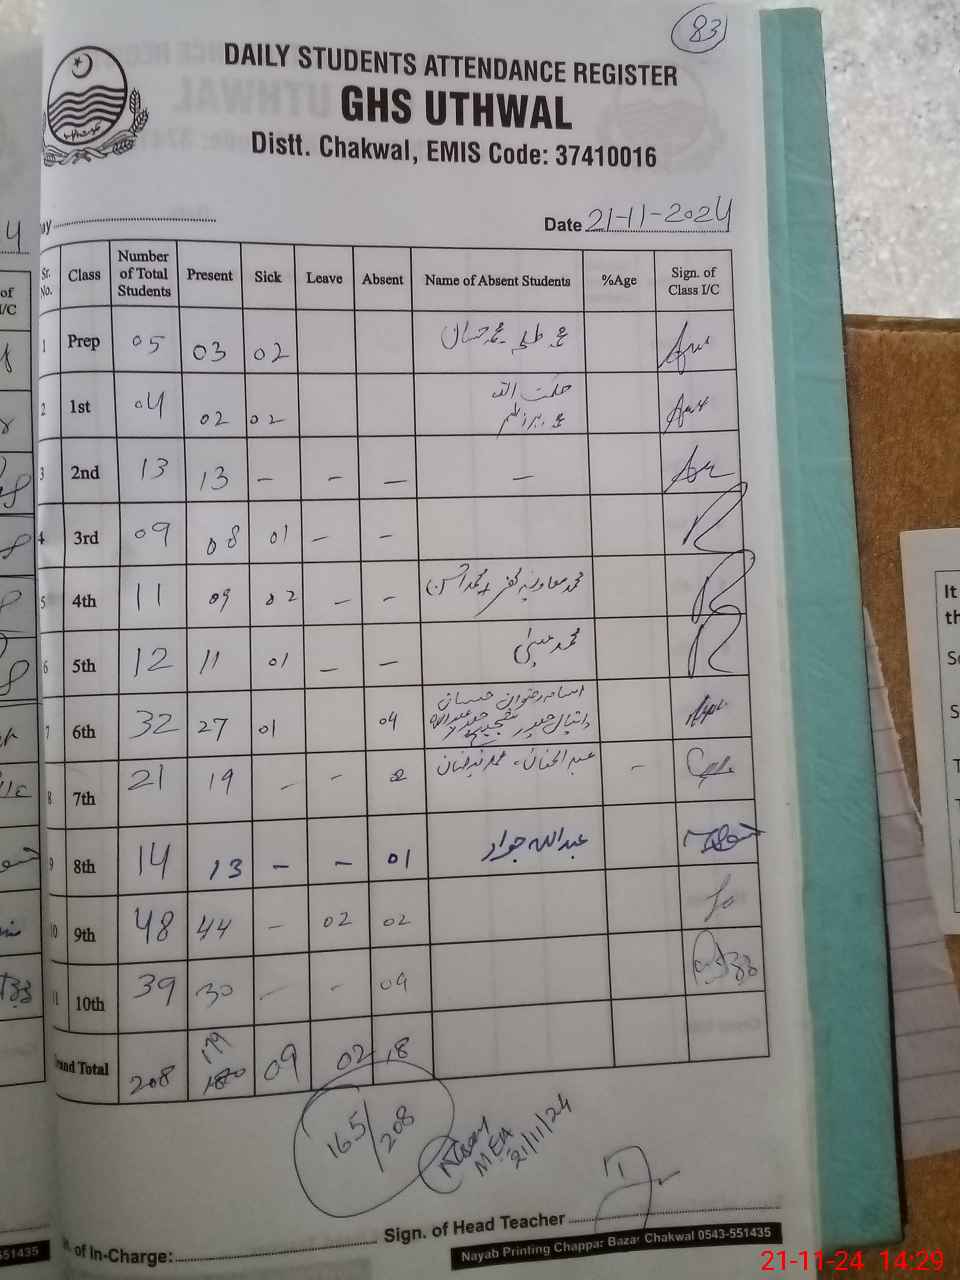 83
DAILY STUDENTS ATTENDANCE REGISTER
GHS UTHWAL
Distt. Chakwal, EMIS Code: 37410016
Date 21-11-2024
Sr. No. Class Number of Total Students Present Sick Leave Absent Name of Absent Students %Age Sign. of Class I/C
1 Prep 05 03 02 محمد طلحہ محمد حسان
2 1st 04 02 02 حکمت اللہ محمد
3 2nd 13 13 - - - -
4 3rd 09 08 01 - -
5 4th 11 09 02 - - محمد معاویہ محمد احسن
6 5th 12 11 01 - - محمد عیسیٰ
7 6th 32 27 01 04 اسامہ رضوان حسان دانیال حیدر
8 7th 21 19 - - 02 عبدالحنان، محمد فیضان -
9 8th 14 13 - - 01 عبداللہ جواد
10 9th 48 44 - 02 02
11 10th 39 30 - - 09
Grand Total 208 179 180 09 02 18
165/208
MEA
21/11/24
Sign. of Head Teacher
of In-Charge:
Nayab Printing Chappar Bazar Chakwal 0543-551435
551435
of
I/C
It
th
21-11-24 14:29